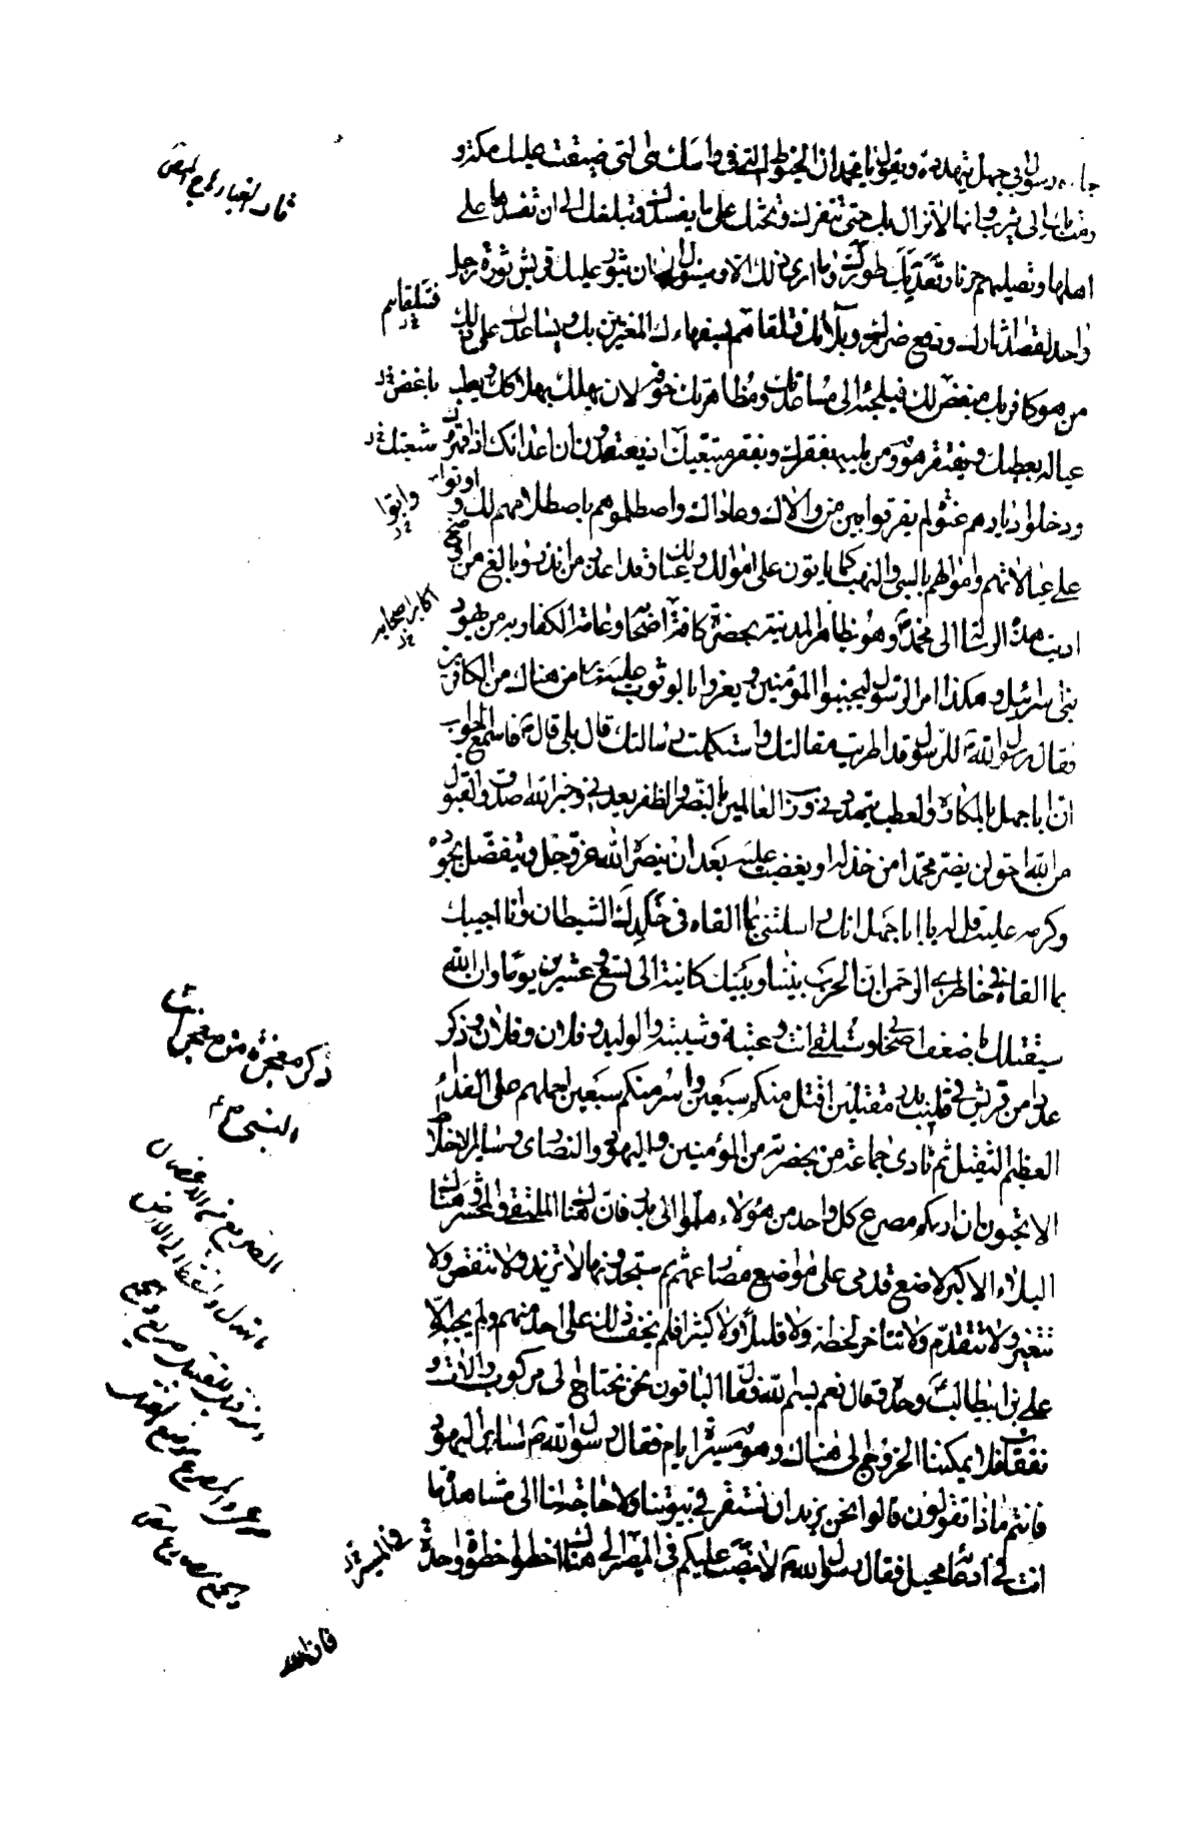 جاءه رسول ابي جهل يتهدده ويقول يا محمد ان الخيوط التي في راسك هي التي ضيقت عليك مكة و
رمت بك الى يثرب وانها لا تزال بك حتى تنفرك وتحثك على ما يفسدك ويتلفك الى ان تفسدها على
اهلها وتصليهم حر نار تعديك طورك وما ارى ذلك الا وسيؤل الى ان تثور عليك قريش ثورة رجل
واحد لقصد اثارك ودفع ضررك وبلائك فتلقاهم بسفهاءك المغترين بك ويساعدك على ذلك
من هو كافر بك مبغض لك فيلجئه الى مساعدتك ومظافرتك خوفه لان يهلك بهلاكك ويعطب
عياله بعطبك ويفتقر هو ومن يليه بفقرك وبفقر متبعيك اذ يعتقدون ان اعدائك اذا قهروك
ودخلوا ديارهم عنوة لم يفرقوا بين من والاك وعاداك واصطلموهم باصطلامهم لك واتوا
على عيالاتهم واموالهم بالسبي والنهب كما ياتون على اموالك وعيالك وقد اعذر من انذر وبالغ من اوضح
اديت هذه الرسالة الى محمد وهو بظاهر المدينة بحضرة كافة اصحابه وعامة الكفار به من يهود
بني اسرائيل وهكذا امر الرسول ليجبنوا المؤمنين ويغروا بالوثوب عليه سائر من هناك من الكافرين
فقال رسول الله ص للرسول قد اطريت مقالتك واستكملت رسالتك قال بلى قال ص فاسمع الجواب
ان ابا جهل بالمكاره والعطب يتهددني ورب العالمين بالنصر والظفر يعدني وخبر الله اصدق والقبول
من الله احق لن يضر محمدا من خذله او يغضب عليه بعد ان ينصره الله عز وجل ويتفضل بجوده
وكرمه عليه قل له يا ابا جهل انك راسلتني بما القاه في خلدك الشيطان وانا اجيبك
بما القاه في خاطري الرحمن ان الحرب بيننا وبينك كاينة الى تسع وعشرين يوما وان الله
سيقتلك باضعف اصحابي وستلقى انت وعتبة وشيبة والوليد وفلان وفلان وذكر
عددا من قريش في قليب بدر مقتلين اقتل منكم سبعين واسر منكم سبعين احملهم على الفداء
العظيم الثقيل ثم نادى جماعة من بحضرته من المؤمنين واليهود والنصارى وسائر الاخلاط
الا تحبون ان اريكم مصرع كل واحد من هؤلاء هلموا الى بدر فان هناك الملتقى والمحشر وهناك
البلاء الاكبر لاضع قدمي على مواضع مصارعهم ثم ستجدونها لا تزيد ولا تنقص ولا
تتغير ولا تتقدم ولا تتاخر لحظة ولا قليلا ولا كثيرا فلم يخف ذلك على احد منهم ولم يجبه الا
علي بن ابيطالب ع وحده وقال نعم بسم الله فقال الباقون نحن نحتاج الى مركوب والات و
نفقات فلا يمكننا الخروج الى هناك وهو مسيرة ايام فقال رسول الله ص لسائر اليهود
فانتم ماذا تقولون قالوا نحن نريد ان نستقر في بيوتنا ولا حاجة لنا الى مشاهدة ما
انت في ادعائه محيل فقال رسول الله ص لا نصب عليكم في المصير الى هناك اخطوا خطوة واحدة
ثار الغبار اي
فتلقاهم
باغض
شعتك
وابوا
اكابر اصحابه
ذكر معجزة من معجزات
النبي ص
في المسير
فان الله